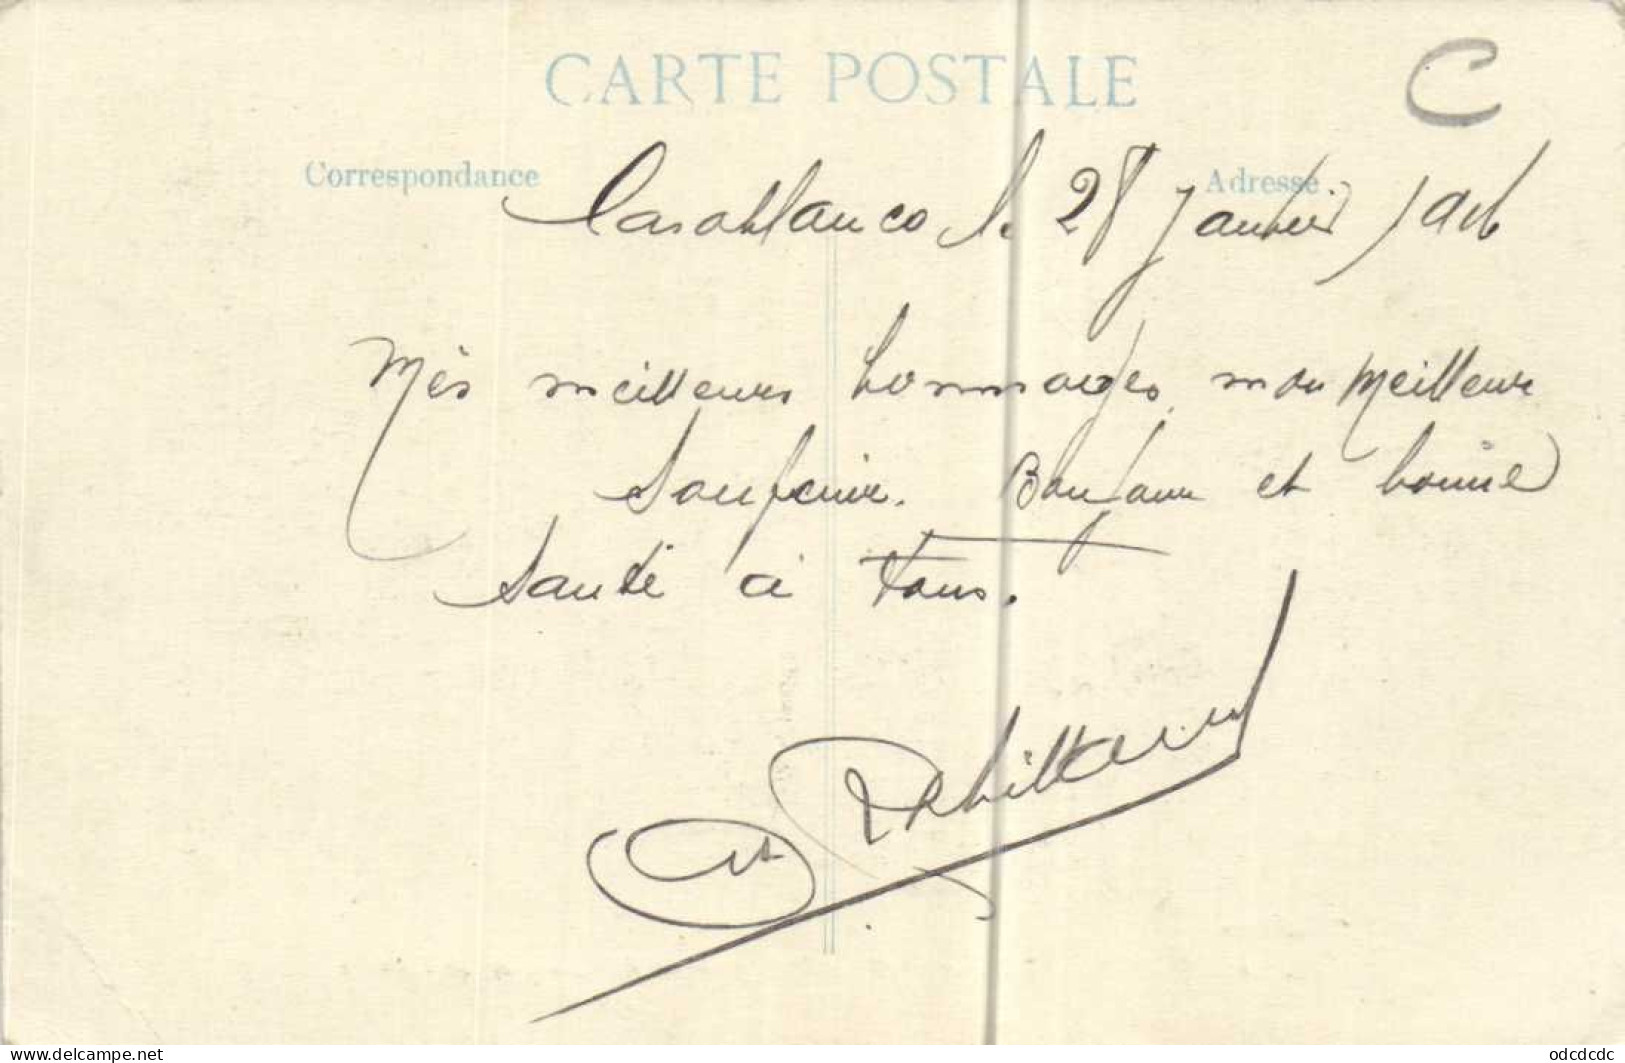 CARTE POSTALE
C
Correspondance
Adresse
Casablanca le 28 Janvier
Mes meilleurs hommages, mon meilleur
Souvenir. Bonjour et bonne
Santé à Tous.
www.delcampe.net
odcdcdc